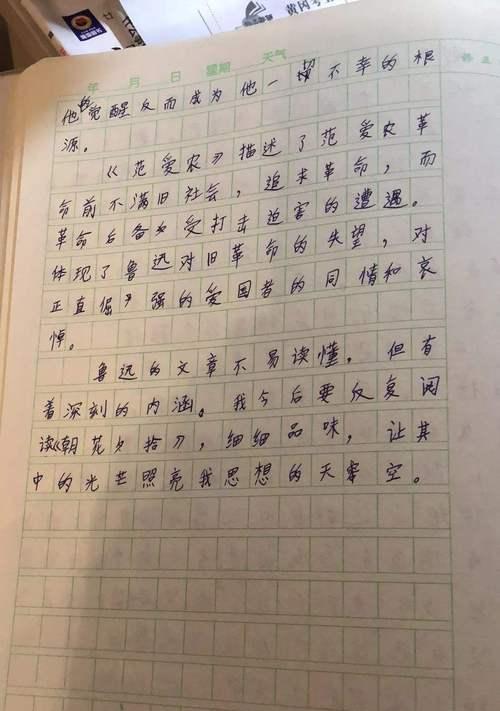 黄冈考
年 月 日 星期 天气
他的觉醒反而成为他一切不幸的根
源。
《范爱农》描述了范爱农革
命前不满旧社会，追求革命，而
革命后备受打击迫害的遭遇。
体现了鲁迅对旧革命的失望，对
正直倔强的爱国者的同情和哀
悼。
鲁迅的文章不易读懂，但有
着深刻的内涵。我今后要反复阅
读《朝花夕拾》，细细品味，让其
中的光芒照亮我思想的天空。